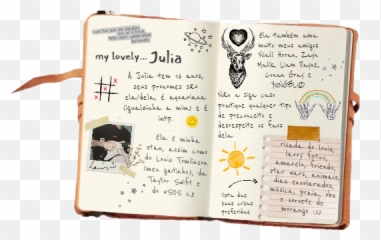 my lovely... Julia
A Julia tem 15 anos,
seus pronomes são
ela/dela, é aquariana
(igualzinha a mim) e é
intp.
Ela é minha
stan, assim como
do Louis Tomlinson
(meu gatinho), da
Taylor Swift e
do 5SOS <3
Ela também ama
muito meus amigos
Niall Horan, Zayn
Malik, Liam Payne,
Conan Gray e
Não a siga caso
pratique qualquer tipo
de preconceito e
desrespeite os fãs
dela.
tomu das
suas coisas
preferidas
risada do louis,
larry fetus,
amarelo, friends,
star wars, animais,
dias ensolarados,
música, praia, doce
e sorvete de
morango :))